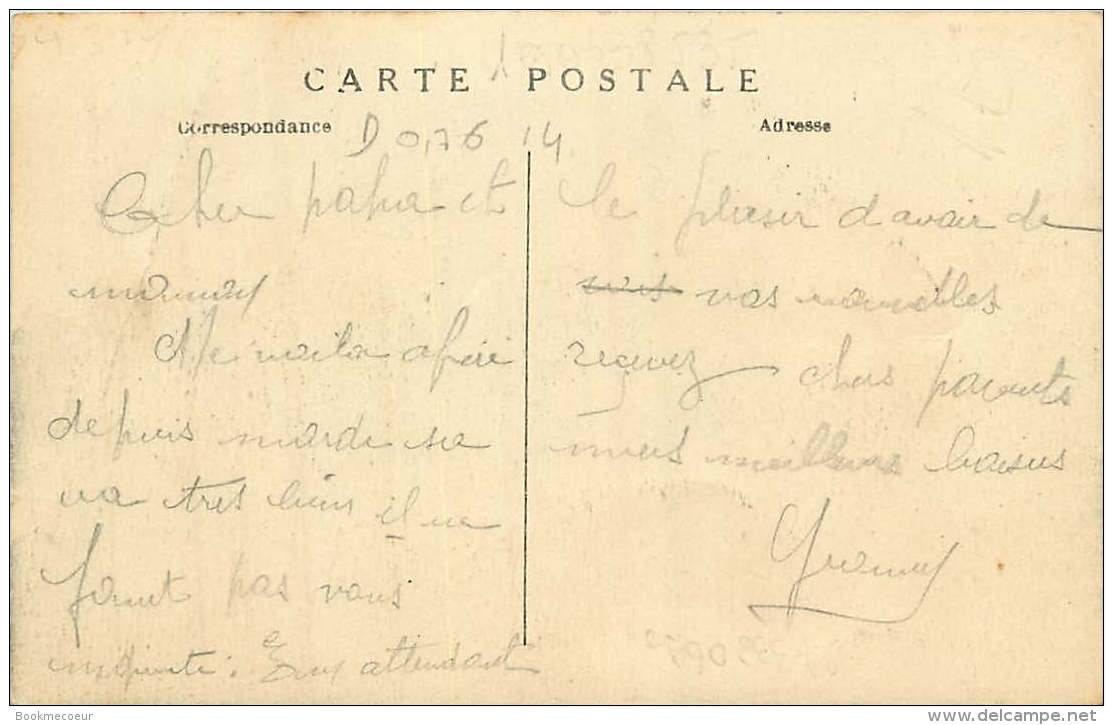 CARTE POSTALE
Correspondance
Adresse
D 0,76 14
Cher papa et
maman
Me voila opéré
depuis mardi sa
va tres bien il ne
faut pas vous
En attendant
le plaisir d avoir de
vos nouvelles
recevez chers parents
mes meilleurs baisers
Bookmecoeur
delcampe.net